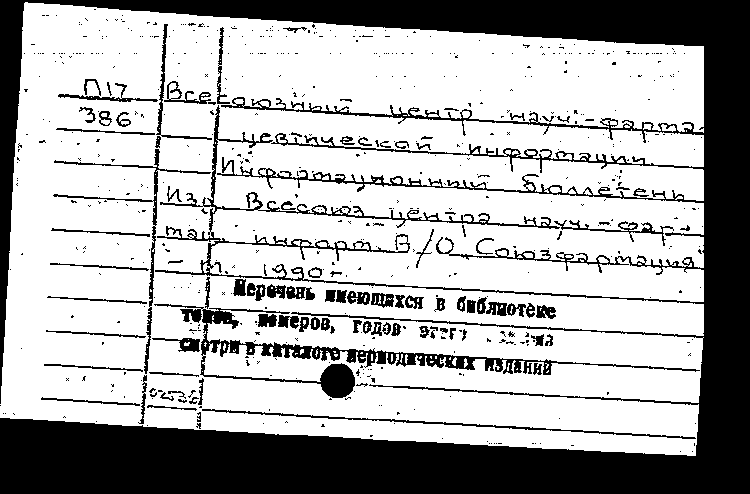 П17 Всесоюзный центр науч.-фарма-
386 цевтической информации.
Информационный бюллетень
Изд. Всесоюз. центра науч.-фар-
мац. информ. В/О „Союзфармация"
- М. 1990-
Перечень имеющихся в библиотеке
томов, номеров, годов этого
смотри в каталоге периодических изданий
02536